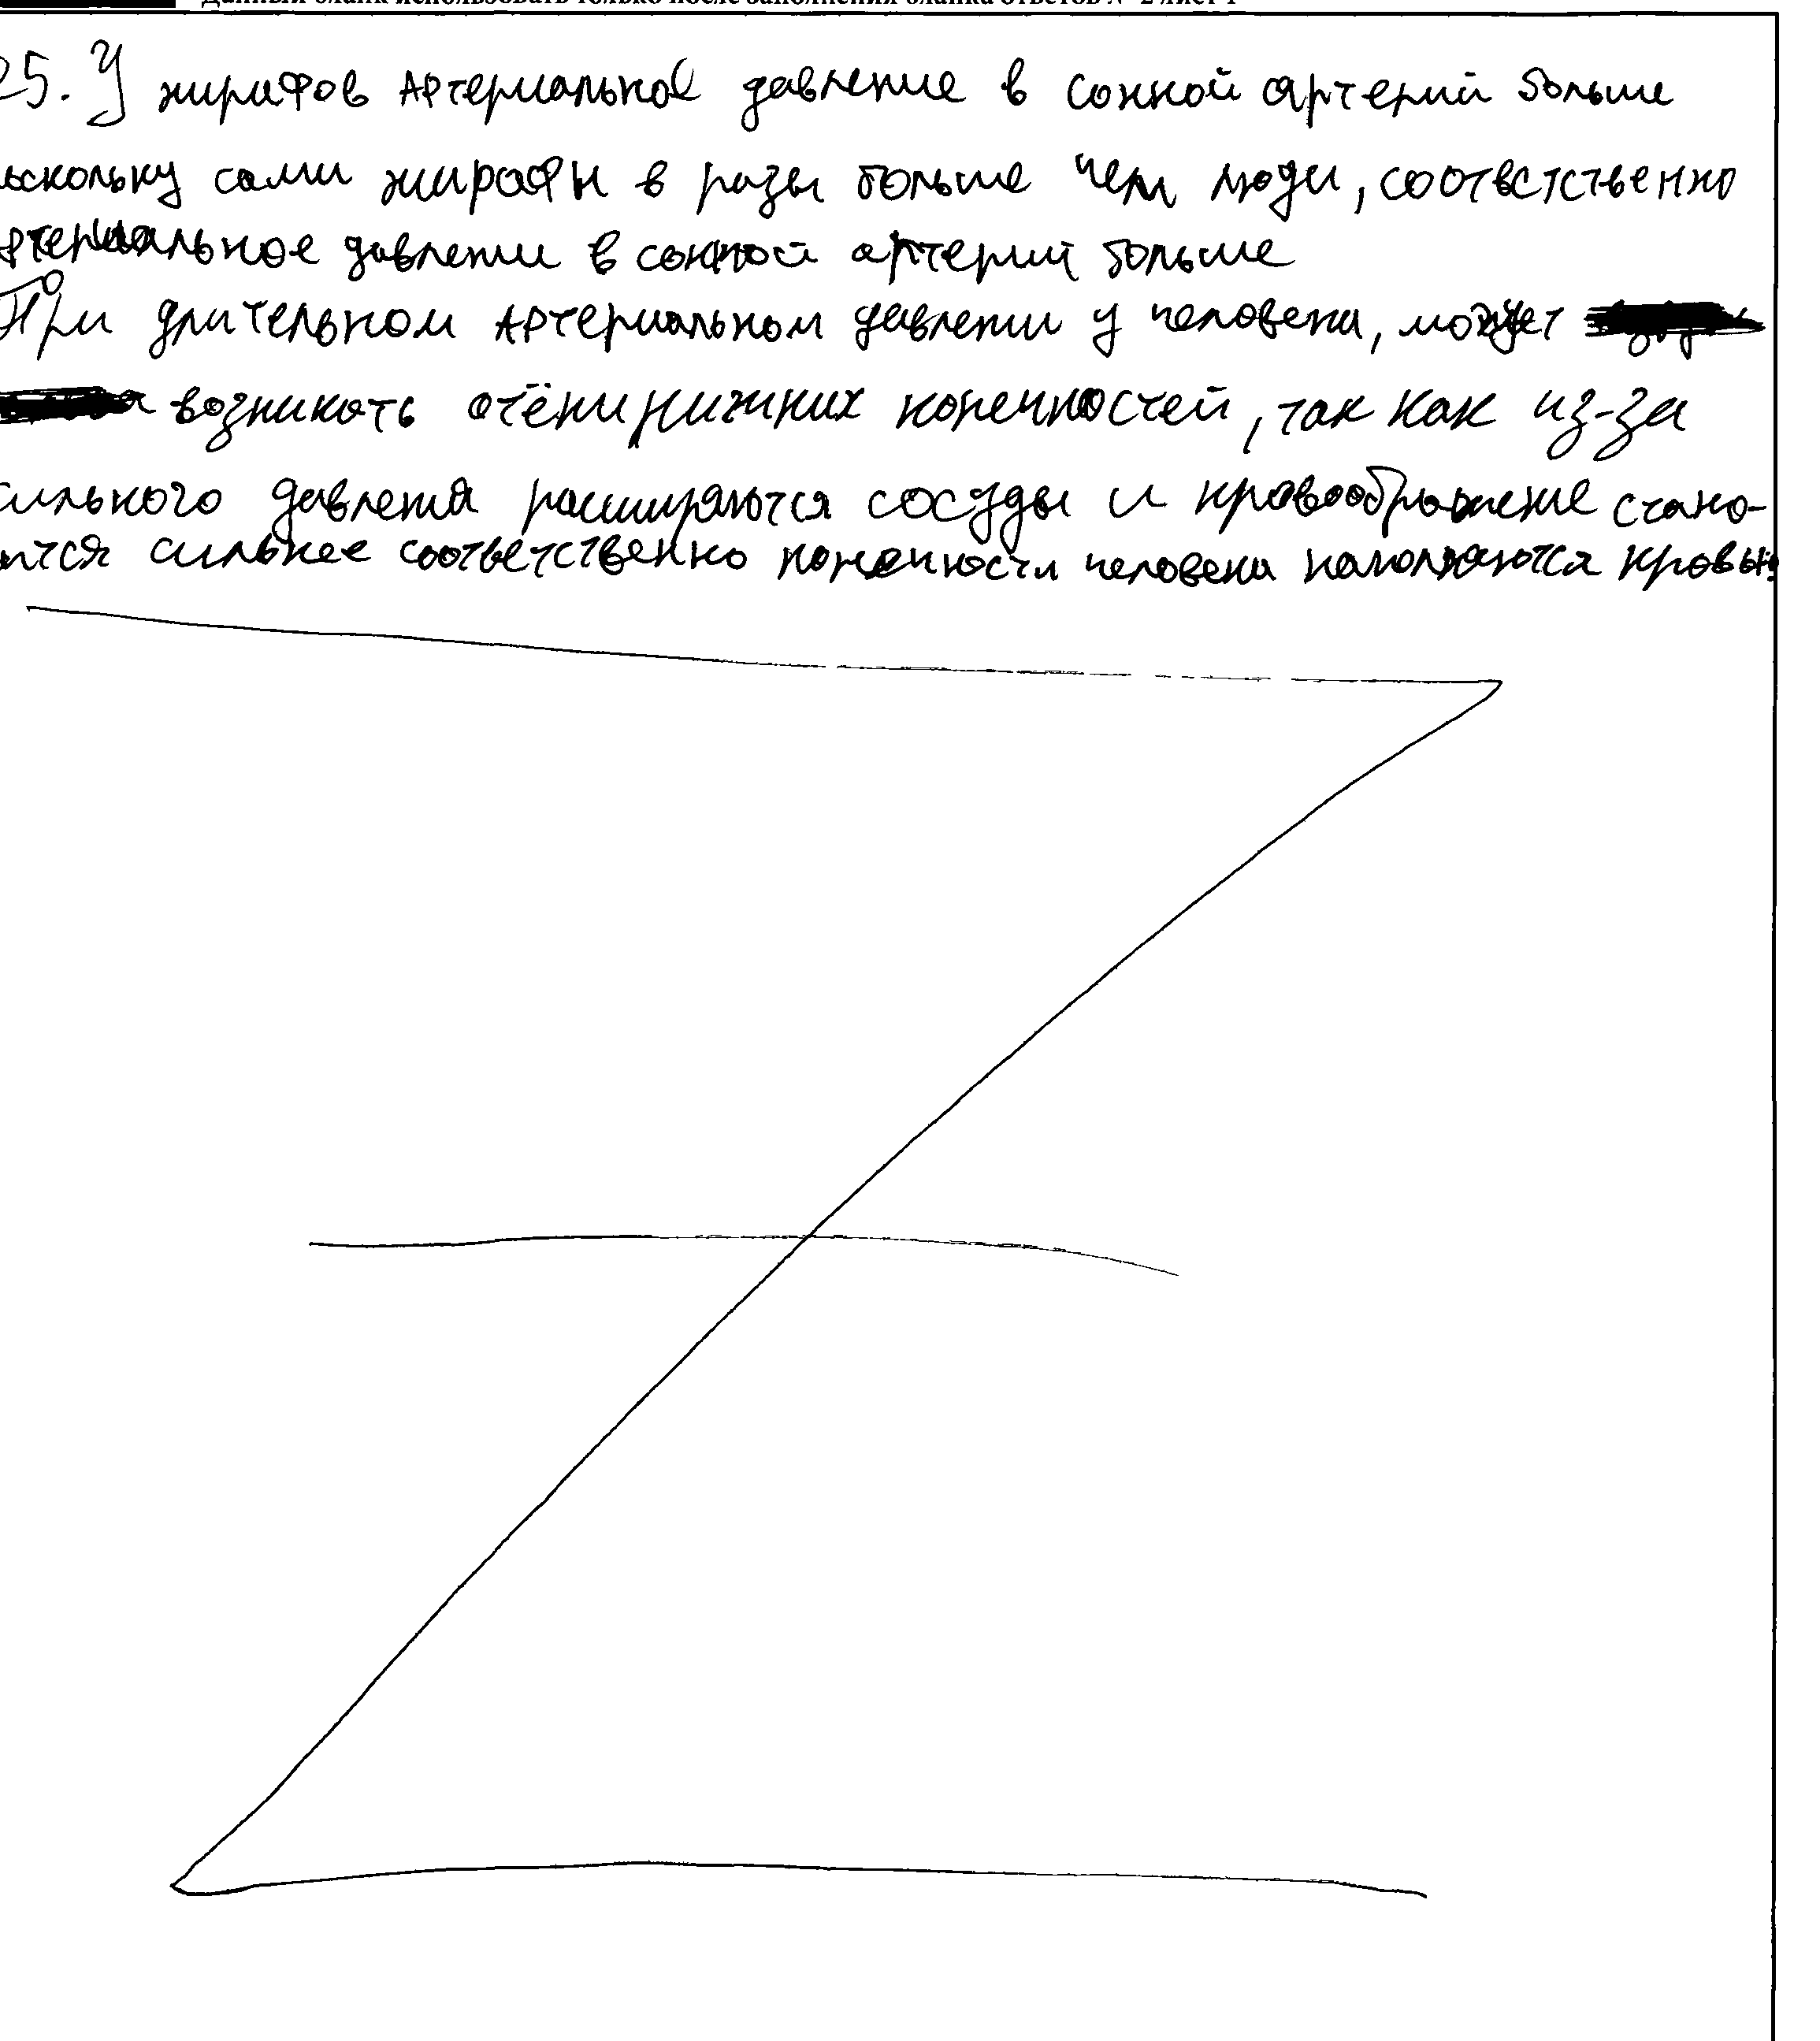 Данный бланк использовать только после заполнения бланка ответов № 2 лист 1
25. У жирафов артериальное давление в сонной артерий больше
ьскольку сами жирафы в разы больше чем люди, соответственно
ртериальное давлени в сонной артерий больше
При длительном артериальном давлени у человека, может
возникать отёки нижних конечностей, так как из-за
сильного давления расширяются сосуды и кровообращение стано-
ится сильнее соответственно конечности человека наполняются кровью